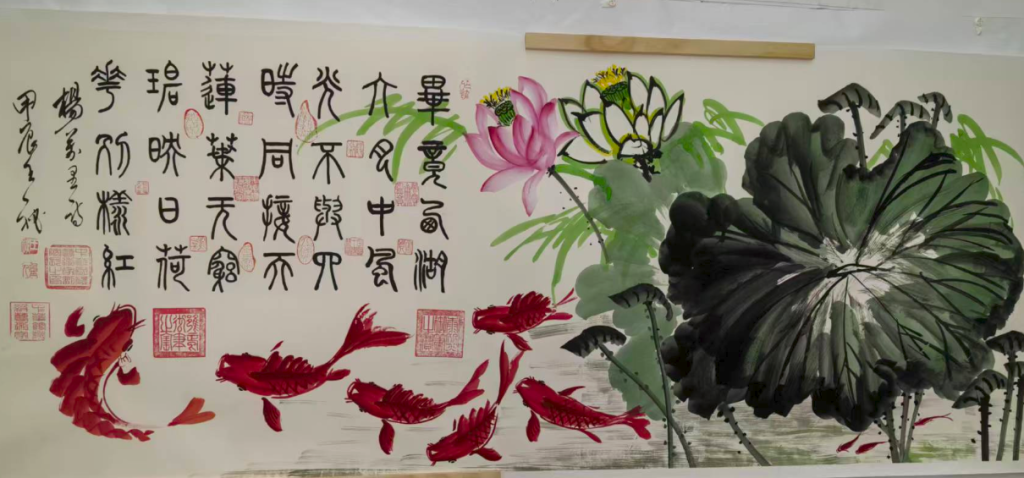 畢竟西湖
六月中風
光不與四
時同接天
蓮葉无窮
碧映日荷
華別樣紅
楊萬里詩
甲辰